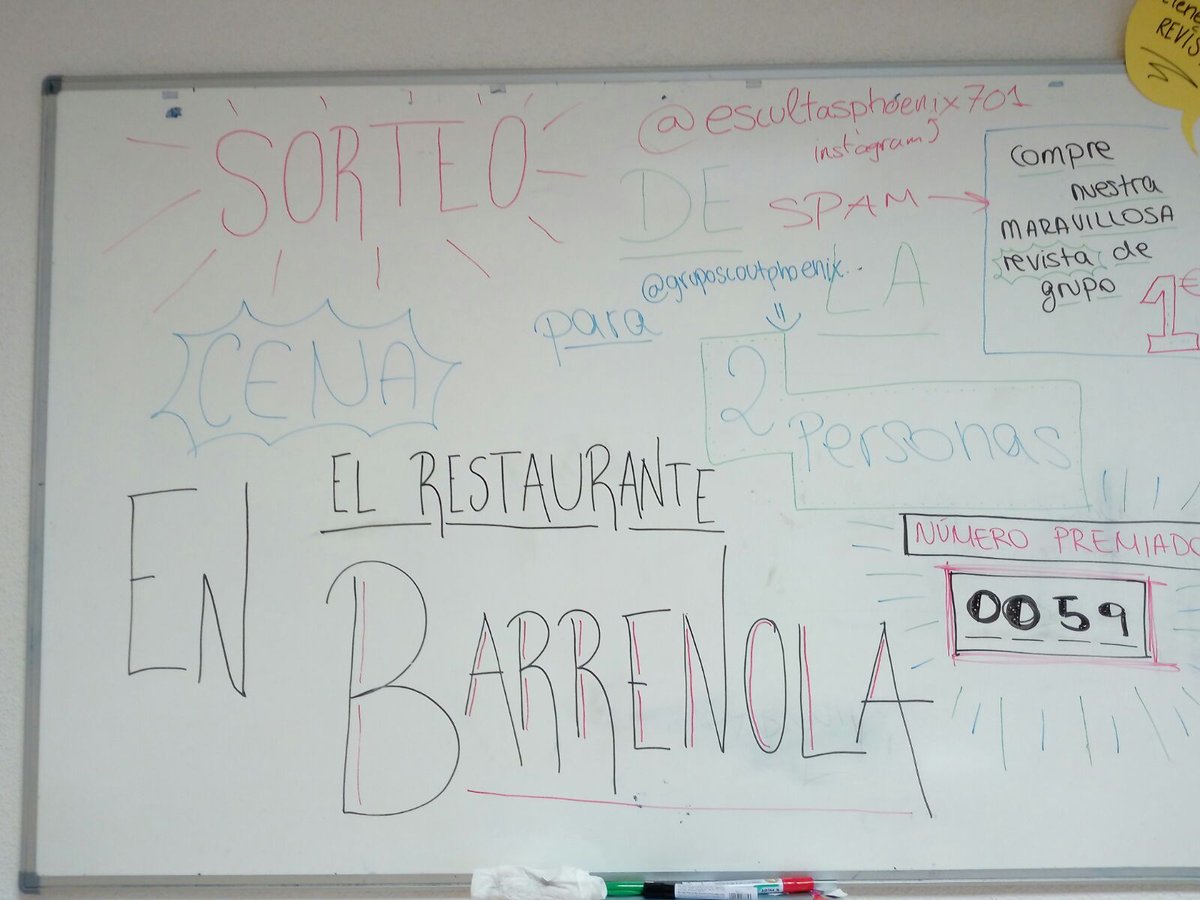 SORTEO
DE
LA
CENA
para
2
Personas
EN
EL RESTAURANTE
BARRENOLA
@escultasphoenix701
instagram
SPAM
@gruposcoutphoenix..
compre
nuestra
MARAVILLOSA
revista de
grupo
1€
NÚMERO PREMIADO
0059
REVIS